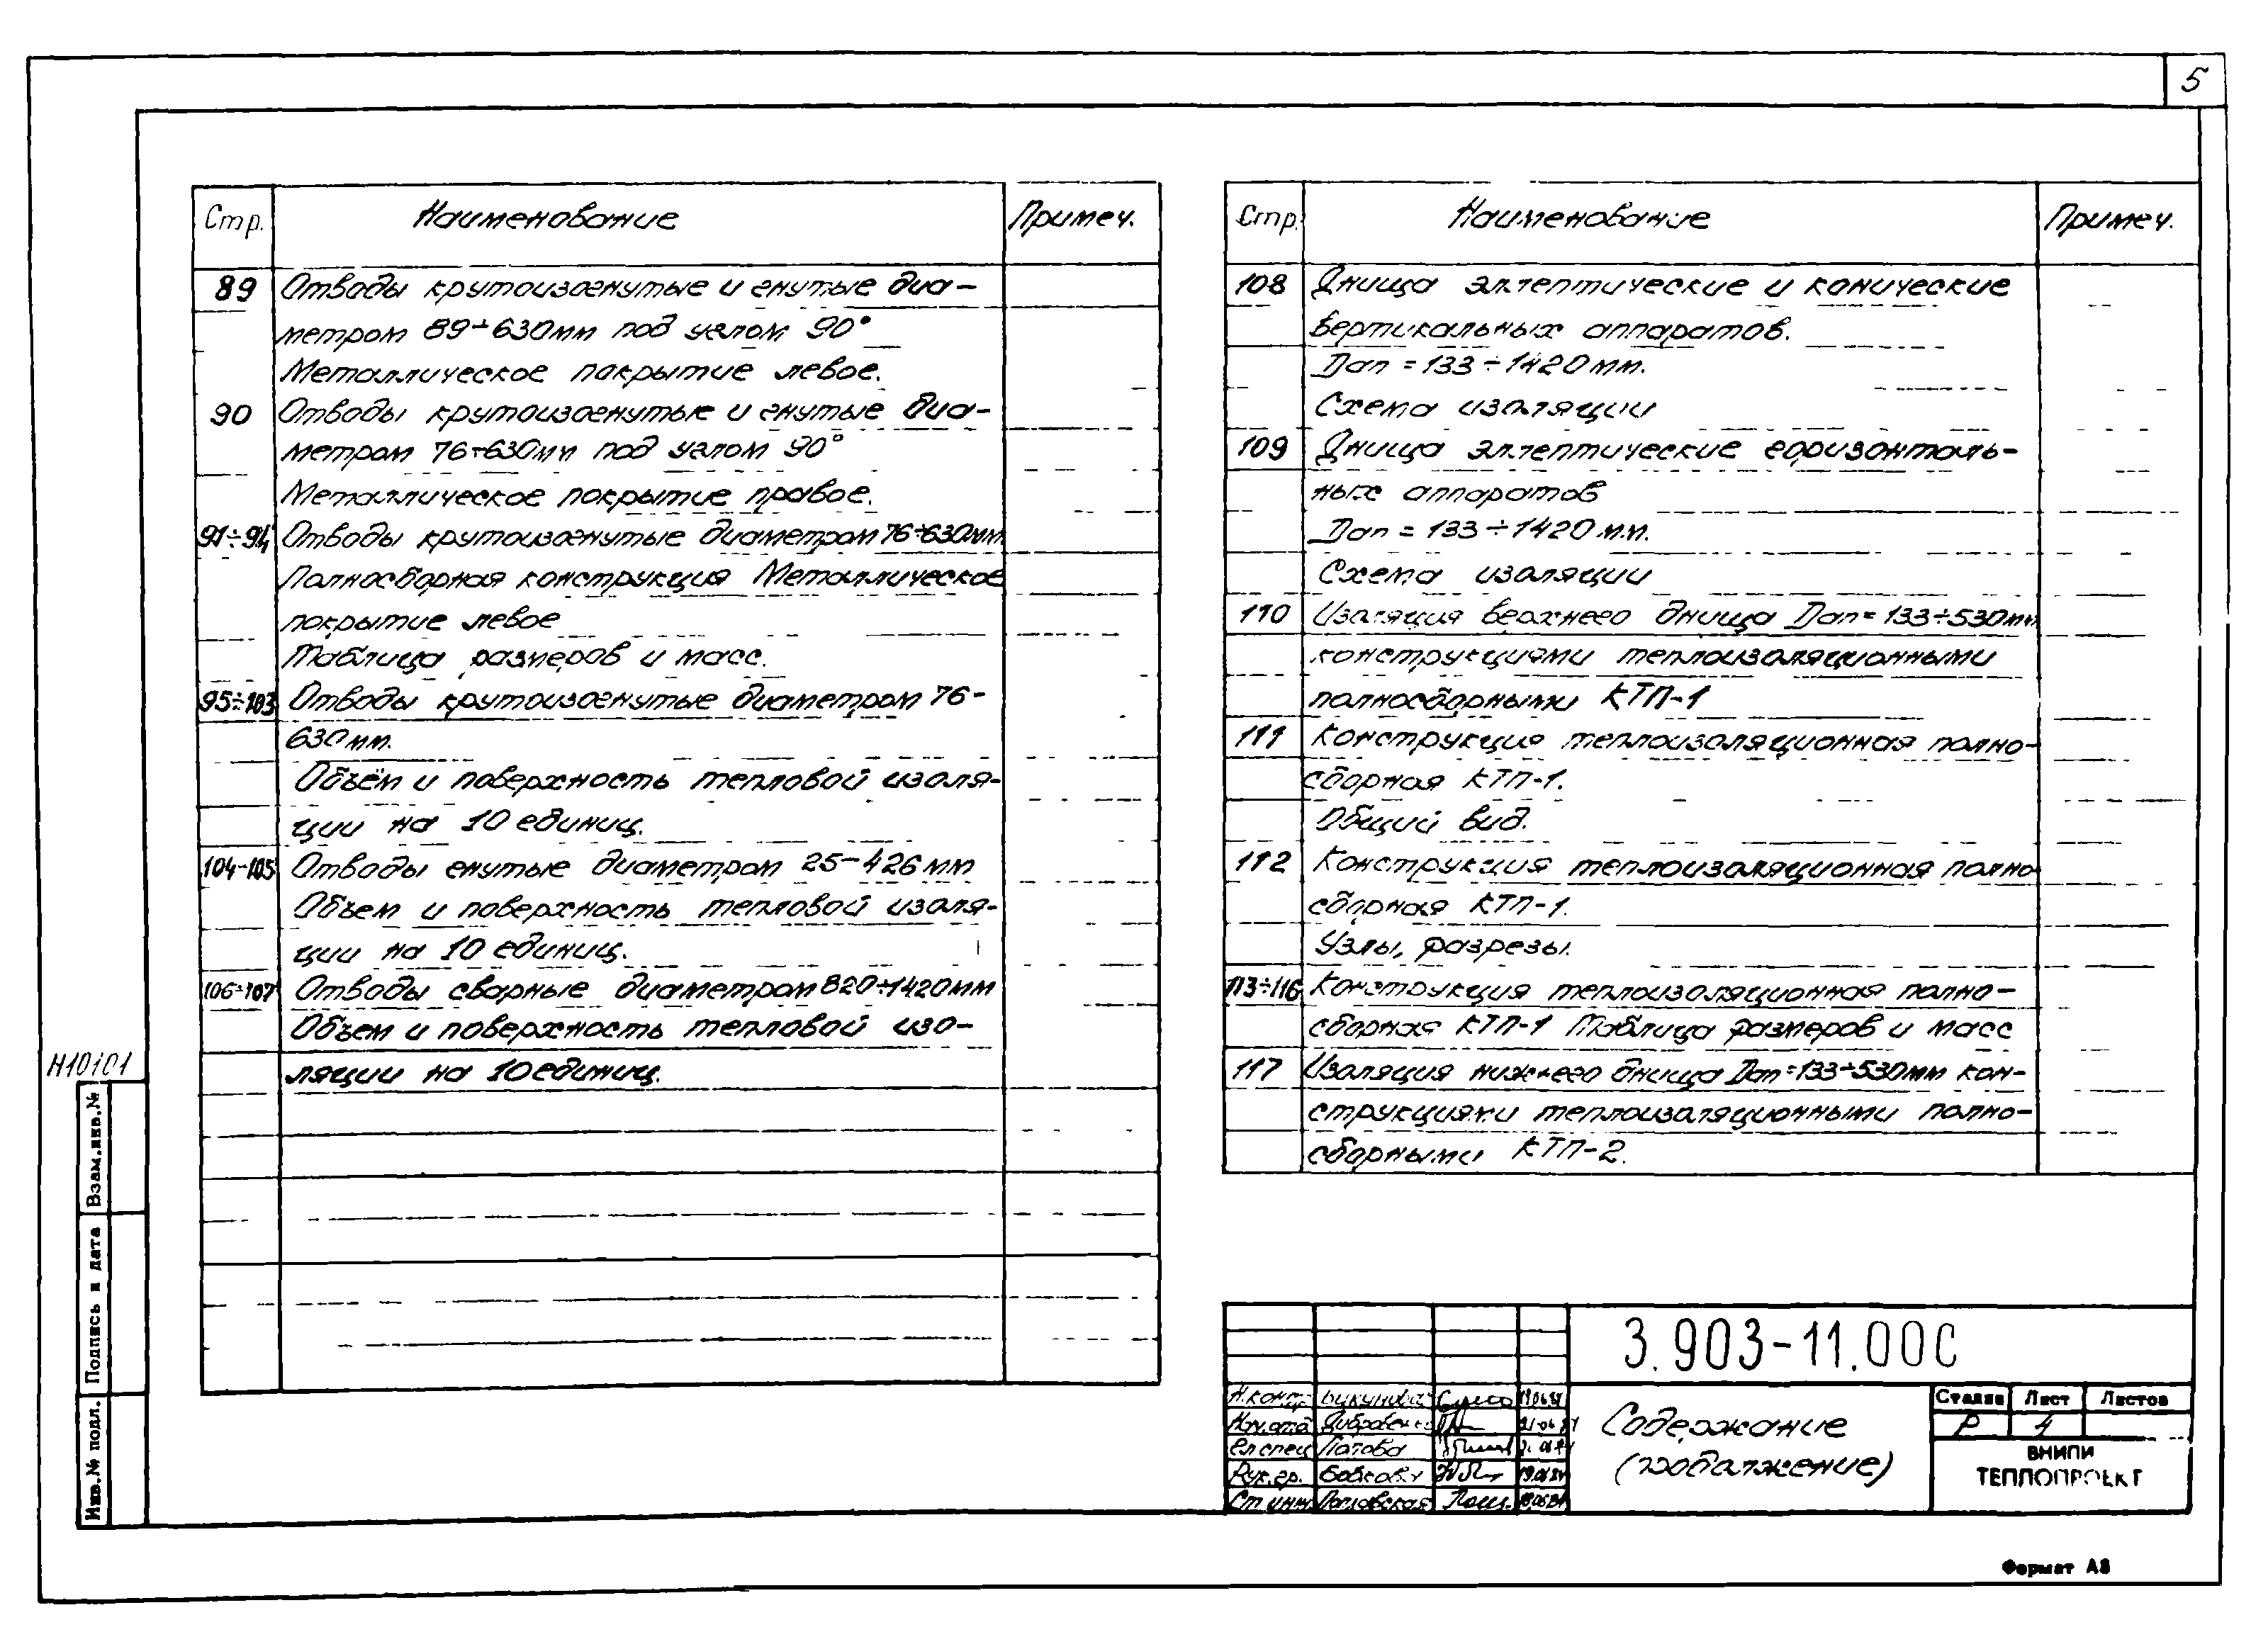 5
Стр. Наименование Примеч.
89 Отводы крутоизогнутые и гнутые диа-
метром 89÷630мм под углом 90°
Металлическое покрытие левое.
90 Отводы крутоизогнутые и гнутые диа-
метром 76÷630мм под углом 90°
Металлическое покрытие правое.
91÷94 Отводы крутоизогнутые диаметром 76÷630мм.
Полносборная конструкция Металлическое
покрытие левое
Таблица размеров и масс.
95÷103 Отводы крутоизогнутые диаметром 76-
630мм.
Объём и поверхность тепловой изоля-
ции на 10 единиц.
104-105 Отводы гнутые диаметром 25-426мм
Объем и поверхность тепловой изоля-
ции на 10 единиц.
106÷107 Отводы сварные диаметром 820÷1420мм
Объем и поверхность тепловой изо-
ляции на 10 единиц.
Стр. Наименование Примеч.
108 Днища эллептические и конические
вертикальных аппаратов.
Dап = 133÷1420мм.
Схема изоляции
109 Днища эллептические горизонталь-
ных аппаратов
Dап = 133÷1420мм.
Схема изоляции
110 Изоляция верхнего днища Dап=133÷530мм
конструкциями теплоизоляционными
полносборными КТП-1
111 Конструкция теплоизоляционная полно-
сборная КТП-1.
Общий вид.
112 Конструкция теплоизоляционная полно
сборная КТП-1.
Узлы, разрезы.
113÷116 Конструкция теплоизоляционная полно-
сборная КТП-1 Таблица размеров и масс
117 Изоляция нижнего днища Dап=133÷530мм кон-
струкциями теплоизоляционными полно-
сборными КТП-2.
Н10101
Взам.инв.№
Подпись и дата
Инв.№ подл.
3.903-11.00С
Н.контр.
Нач.отд
Гл спец Попова
Рук.гр.
Ст инж
Содержание
(продолжение)
Стадия Лист Листов
Р 4
ВНИПИ
ТЕПЛОПРОЕКТ
Формат А3